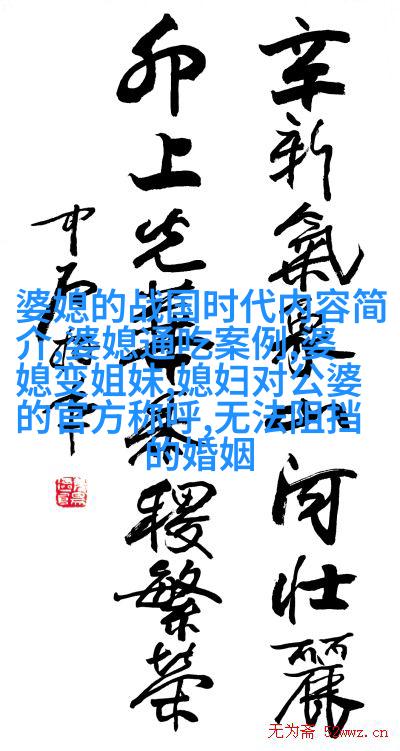 辛新氣山河壮麗
卯上光華稷繁荣
婆媳的战国时代内容简
介,婆媳通吃案例,婆
媳变姐妹,媳妇对公婆
的官方称呼,无法阻挡
的婚姻
无为斋 52wwz.cn